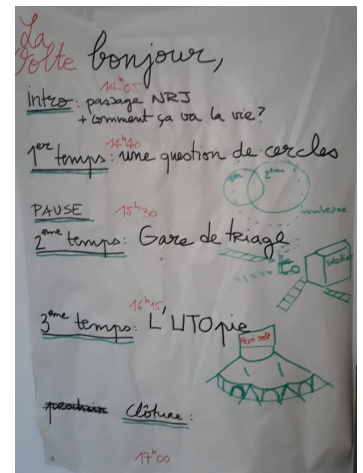 La Volte bonjour,
14h05
intro: passage NRJ
+ comment ça va la vie?
14h40
1er temps: une question de cercles
2ème
membrane
PAUSE 15h30
2ème temps: Gare de triage
16h15
3ème temps: L'UTOpie
clôture:
17h00